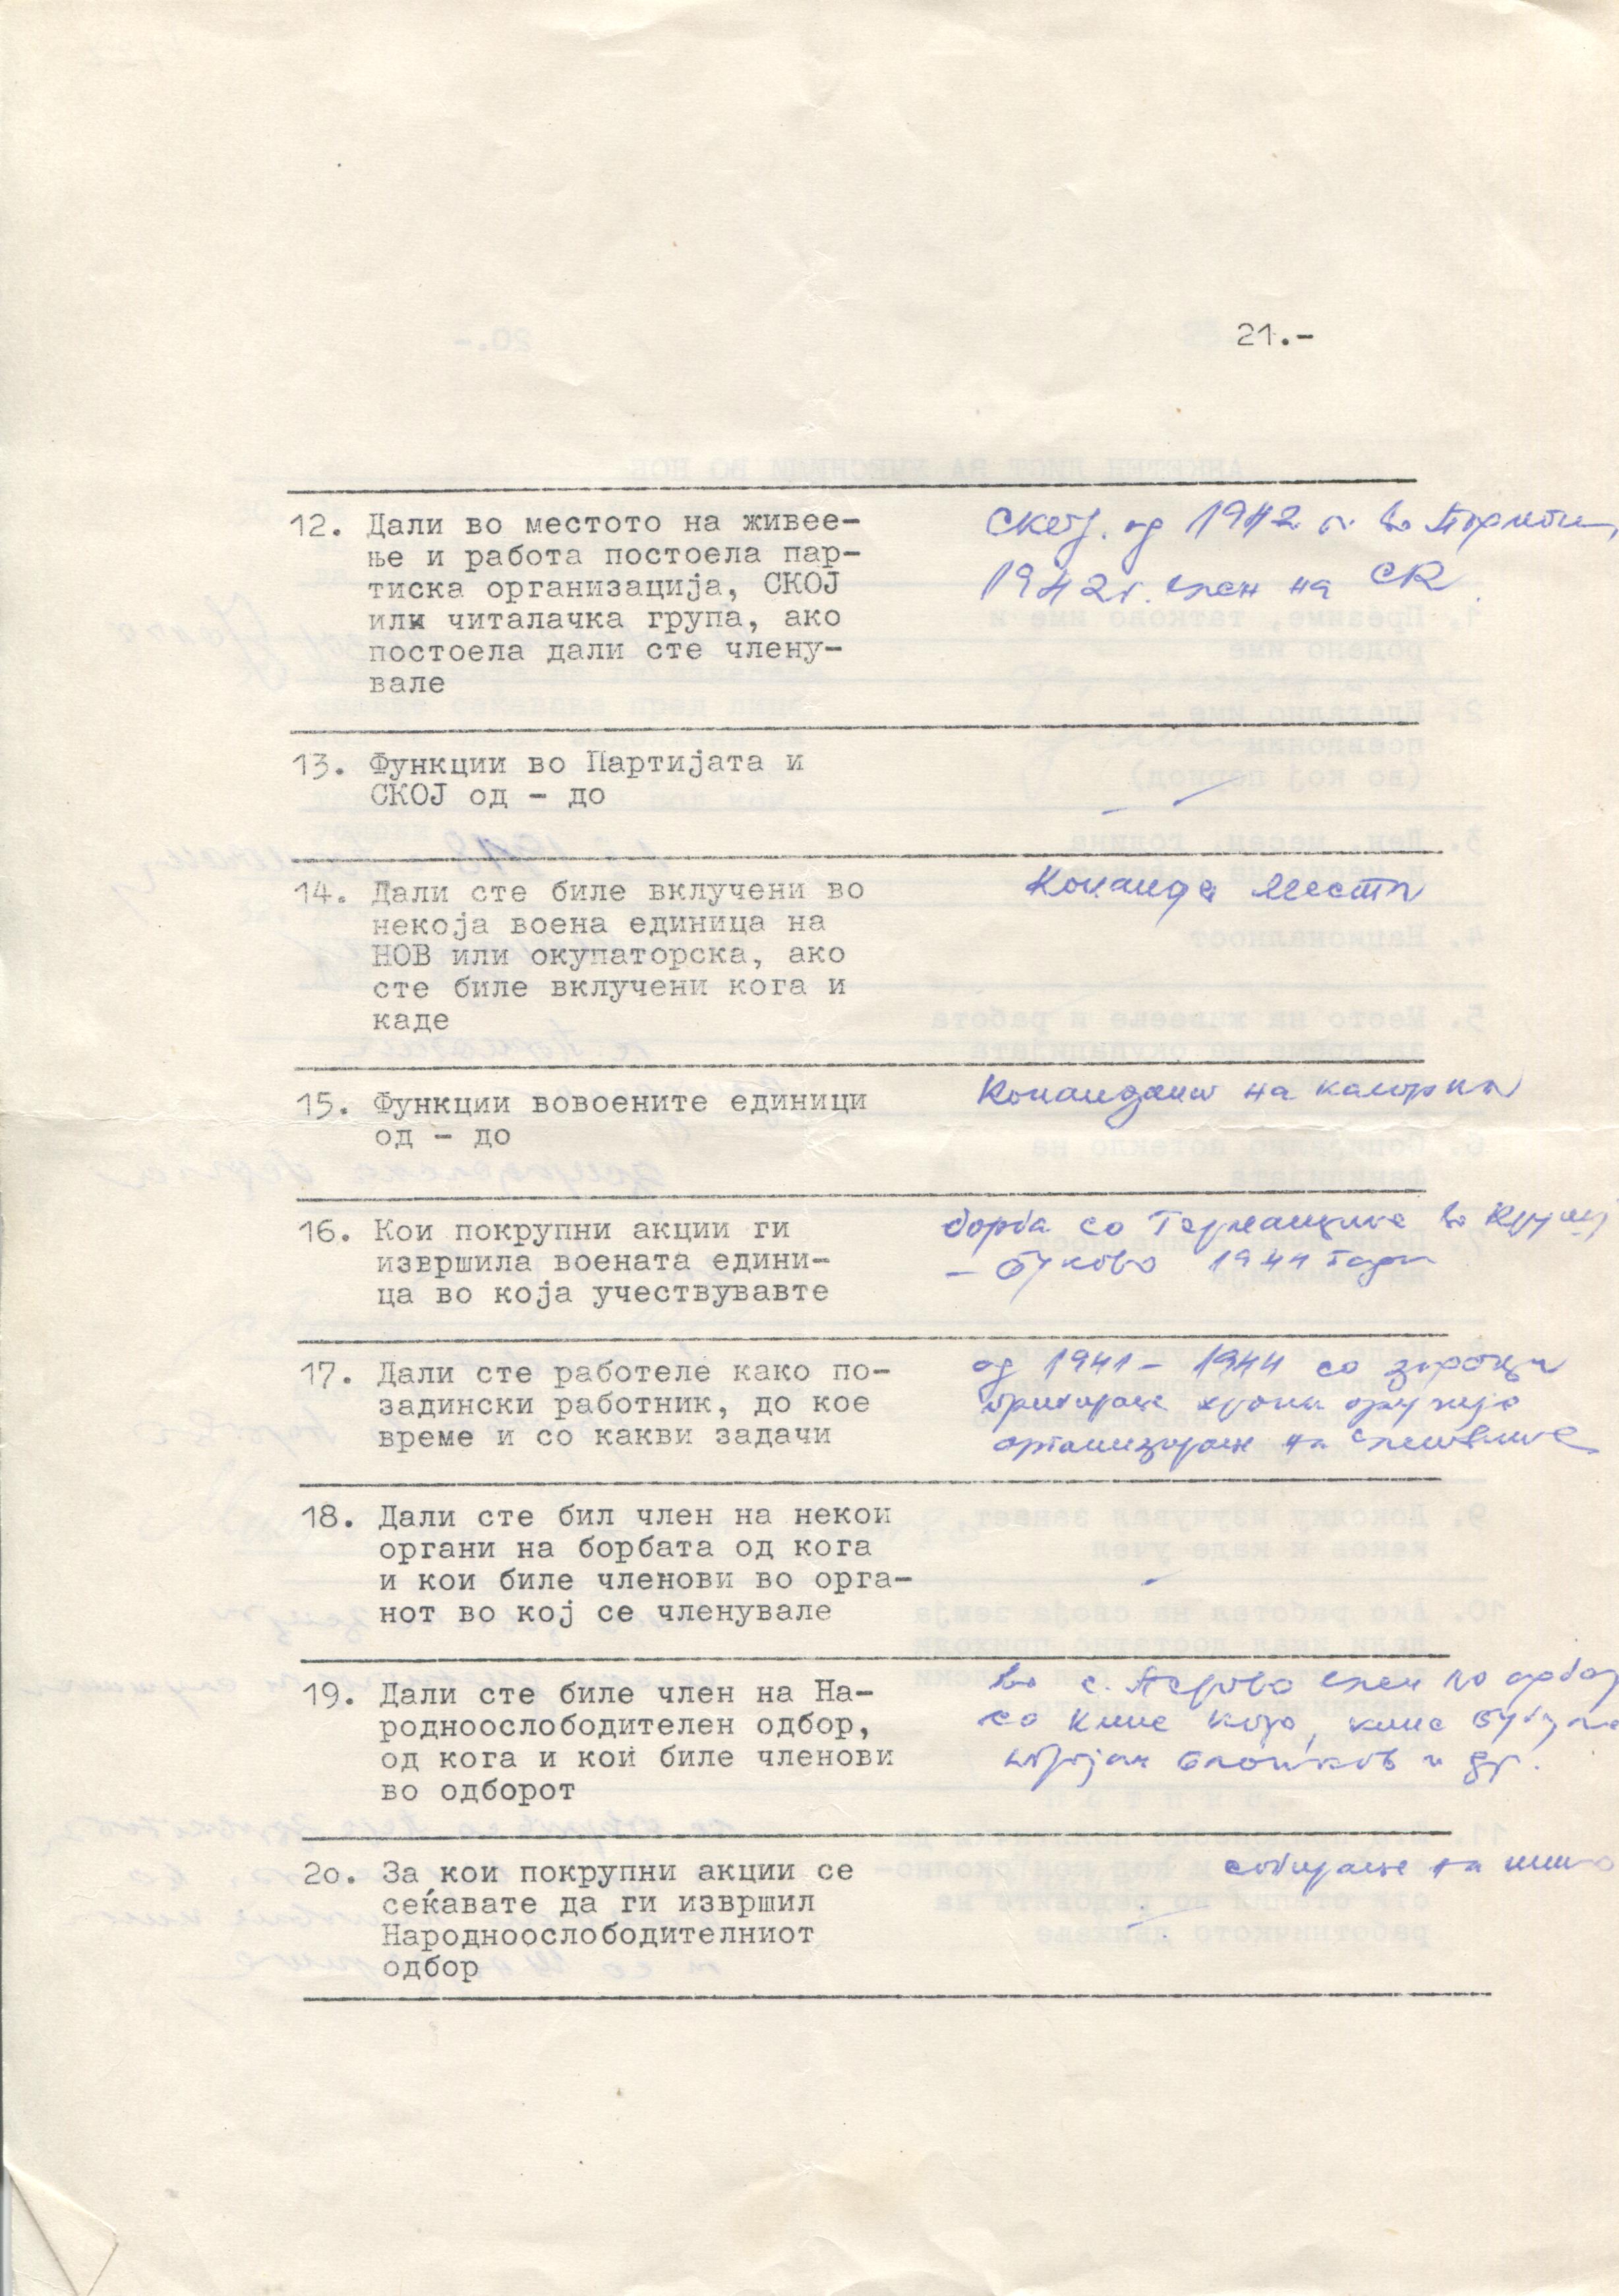 21.-
12. Дали во местото на живее-
ње и работа постоела пар-
тиска организација, СКОЈ
или читалачка група, ако
постоела дали сте члену-
вале
Ској. од 1942 г. во
1942 г. член на СК
13. Функции во Партијата и
СКОЈ од - до
14. Дали сте биле вклучени во
некоја воена единица на
НОВ или окупаторска, ако
сте биле вклучени кога и
каде
Команда Места
15. Функции вовоените единици
од - до
Командант на касарна
16. Кои покрупни акции ги
извршила воената едини-
ца во која учествувавте
борба со Германците во
- Буково 1944 год
17. Дали сте работеле како по-
задински работник, до кое
време и со какви задачи
од 1941 - 1944 со задачи
прибирање храна оружије
организирање на
18. Дали сте бил член на некои
органи на борбата од кога
и кои биле членови во орга-
нот во кој се членувале
-
19. Дали сте биле член на На-
родноослободителен одбор,
од кога и кои биле членови
во одборот
во с. член НО одбор
со
и др.
2о. За кои покрупни акции се
сеќавате да ги извршил
Народноослободителниот
одбор
собирање на